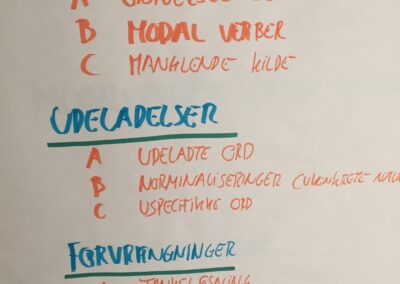 A
B MODAL VERBER
C MANGLENDE KILDE
UDELADELSER
A UDELADTE ORD
B NORMINALISERINGER (UKONKRETE
C USPECIFIKKE ORD
FORVRÆNGNINGER